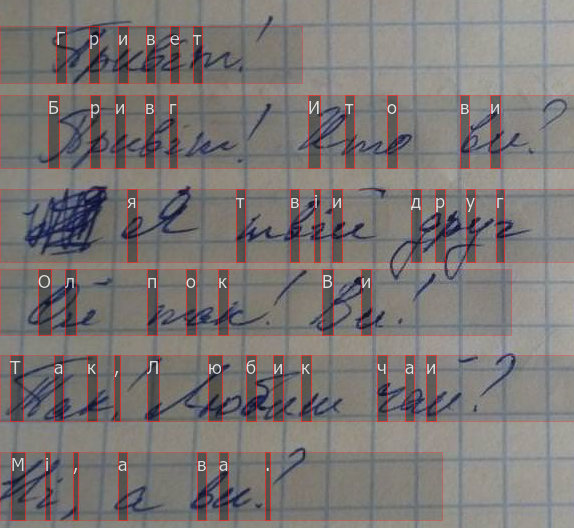 Гривет
Привіт!
Бривг Ито ви
Привіт! Хто ви?
я твій друг
Я твій друг
Ол пок Ви
так! Ви!
Так, Любик чаи
Так! Любиш чай?
Мі, а ва.
Ні, а ви?